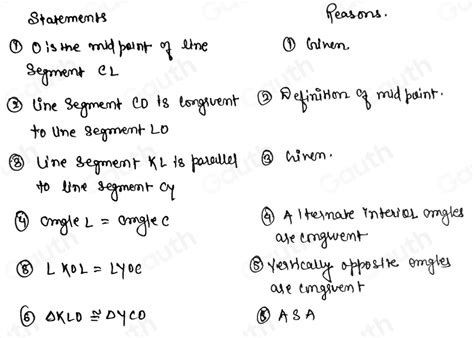 Statements Reasons.
① O is the midpoint of line ① Given
Segment CL
② line segment CO is congruent ② Definition of midpoint.
to line segment LO
③ Line segment KL is parallel ③ Given.
to line segment CY
④ angle L = angle C ④ Alternate interior angles
are congruent
⑤ ∠KOL = ∠YOC ⑤ Vertically opposite angles
are congruent
⑥ ΔKLO ≅ ΔYCO ⑥ ASA